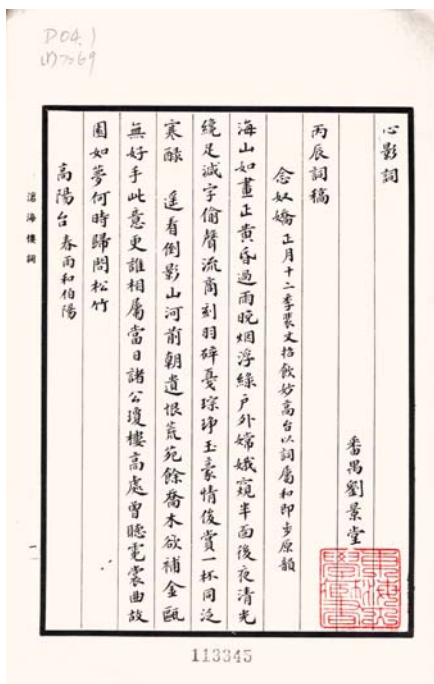 D04.1
心影詞
番禺劉景堂
丙辰詞稿
念奴嬌 正月十二季裴丈招飲妙高台以詞屬和即步原韻
海山如畫正黃昏過雨晚烟浮綠戶外嫦娥窺半面後夜清光
繞足減字偷聲流商刻羽碎戛琮琤玉豪情俊賞一杯同泛
寒醁 遥看倒影山河前朝遺恨荒苑餘喬木欲補金甌
無好手此意更誰相屬當日諸公瓊樓高處曾聽霓裳曲故
園如夢何時歸問松竹
高陽台 春雨和伯陽
滄海樓詞
一
113345